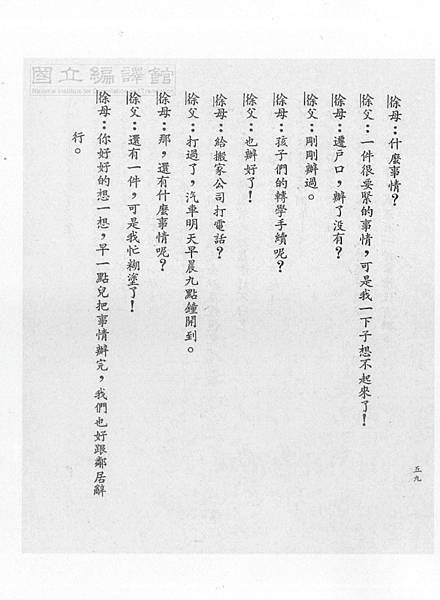 國立編譯館
徐母：什麼事情？
徐父：一件很要緊的事情，可是我一下子想不起來了！
徐母：遷戶口，辦了沒有？
徐父：剛剛辦過。
徐母：孩子們的轉學手續呢？
徐父：也辦好了！
徐母：給搬家公司打電話？
徐父：打過了，汽車明天早晨九點鐘開到。
徐母：那，還有什麼事情呢？
徐父：還有一件，可是我忙糊塗了！
徐母：你好好的想一想，早一點兒把事情辦完，我們也好跟鄰居辭
行。
五九